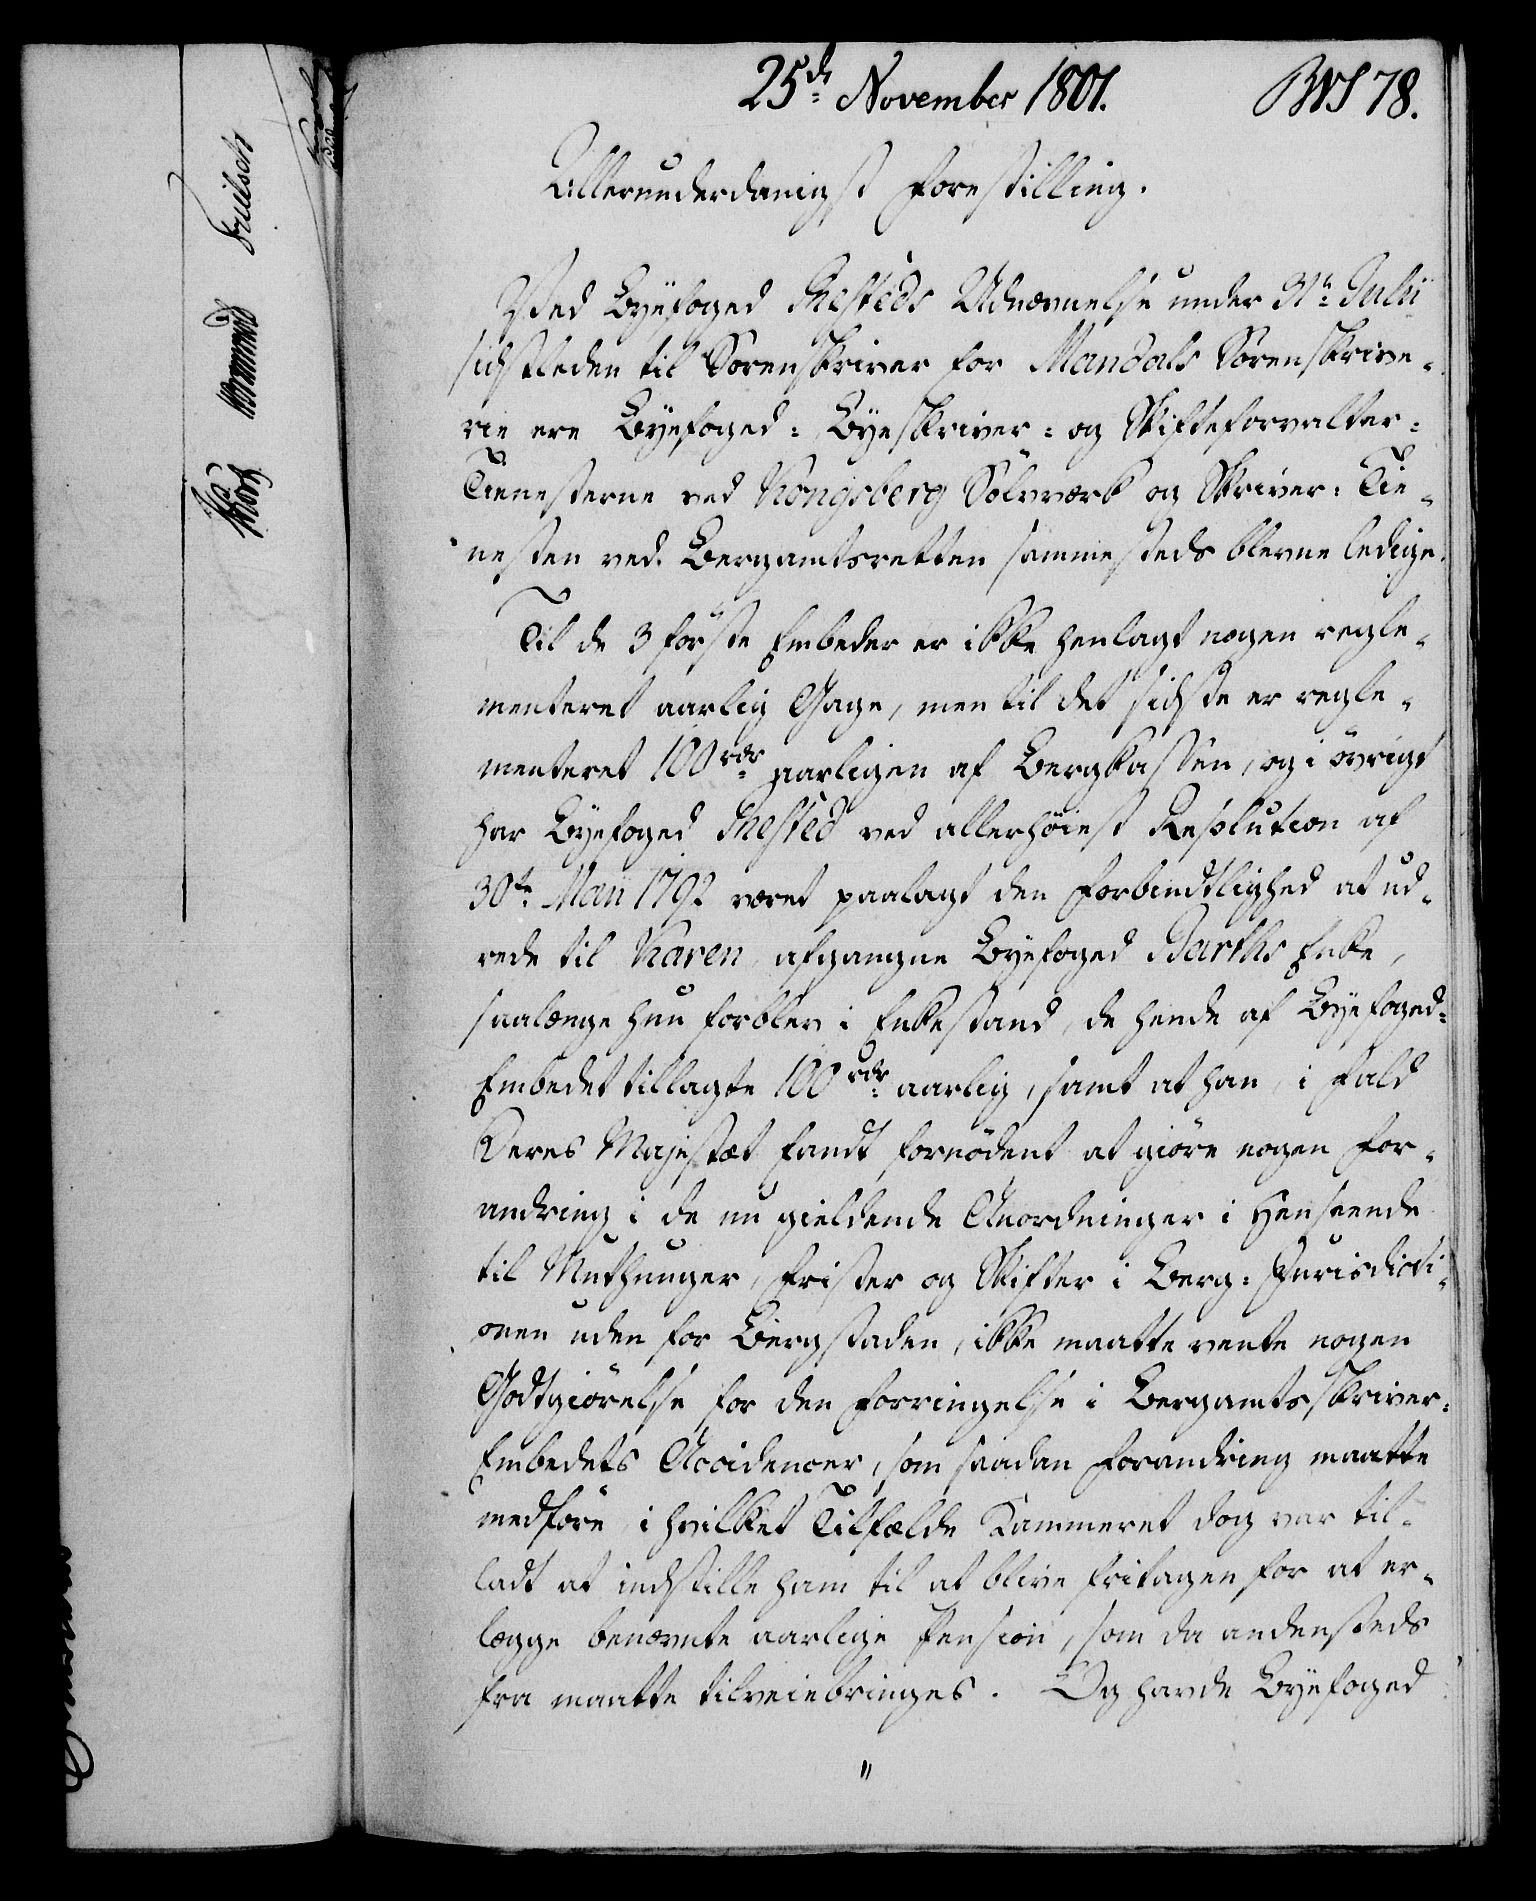 25de November 1801.
78.
Allerunderdanigst Forestilling.
Ved Byefoged Thesteds Udnævnelse under 31te Julii
sidstleden til Sorenskriver for Mandals Sorenskrive-
rie ere Byefoged- Byeskriver- og Skifteforvalter-
Tienesterne ved Kongsberg Sölvværk og Skriver-Tie-
nesten ved Bergamtsretten sammesteds blevne ledige.
Til de 3 förste Embeder er ikke henlagt nogen regle-
menteret aarlig Gage, men til det sidste er regle-
menteret 100 rdr aarligen af Bergkassen, og i övrigt
har Byefoged Thested ved allerhöieste Resolution af
30te Maii 1792 været paalagt den Forbindtlighed at ud-
rede til Karen, afgangne Byefoged Barths Enke,
saalænge hun forblev i Enkestand, de hende af Byefoged-
Embedet tillagte 100 rdr aarlig, samt at han, i Fald
Deres Majestæt fandt fornödent at giöre nogen For-
andring i de nu gieldende Anordninger i Henseende
til Muthunger, Frister og Skifter i Berg-Jurisdicti-
onen uden for Bergstaden, ikke maatte vente nogen
Godtgiörelse for den Forringelse i Bergamtsskriver-
Embedets Accidencer, som saadan Forandring maatte
medföre, i hvilket Tilfælde Kammeret dog var til-
ladt at indstille ham til at blive fritagen for at er-
lægge benævnte aarlige Pension, som da andensteds
fra maatte tilveiebringes. Og havde Byefoged